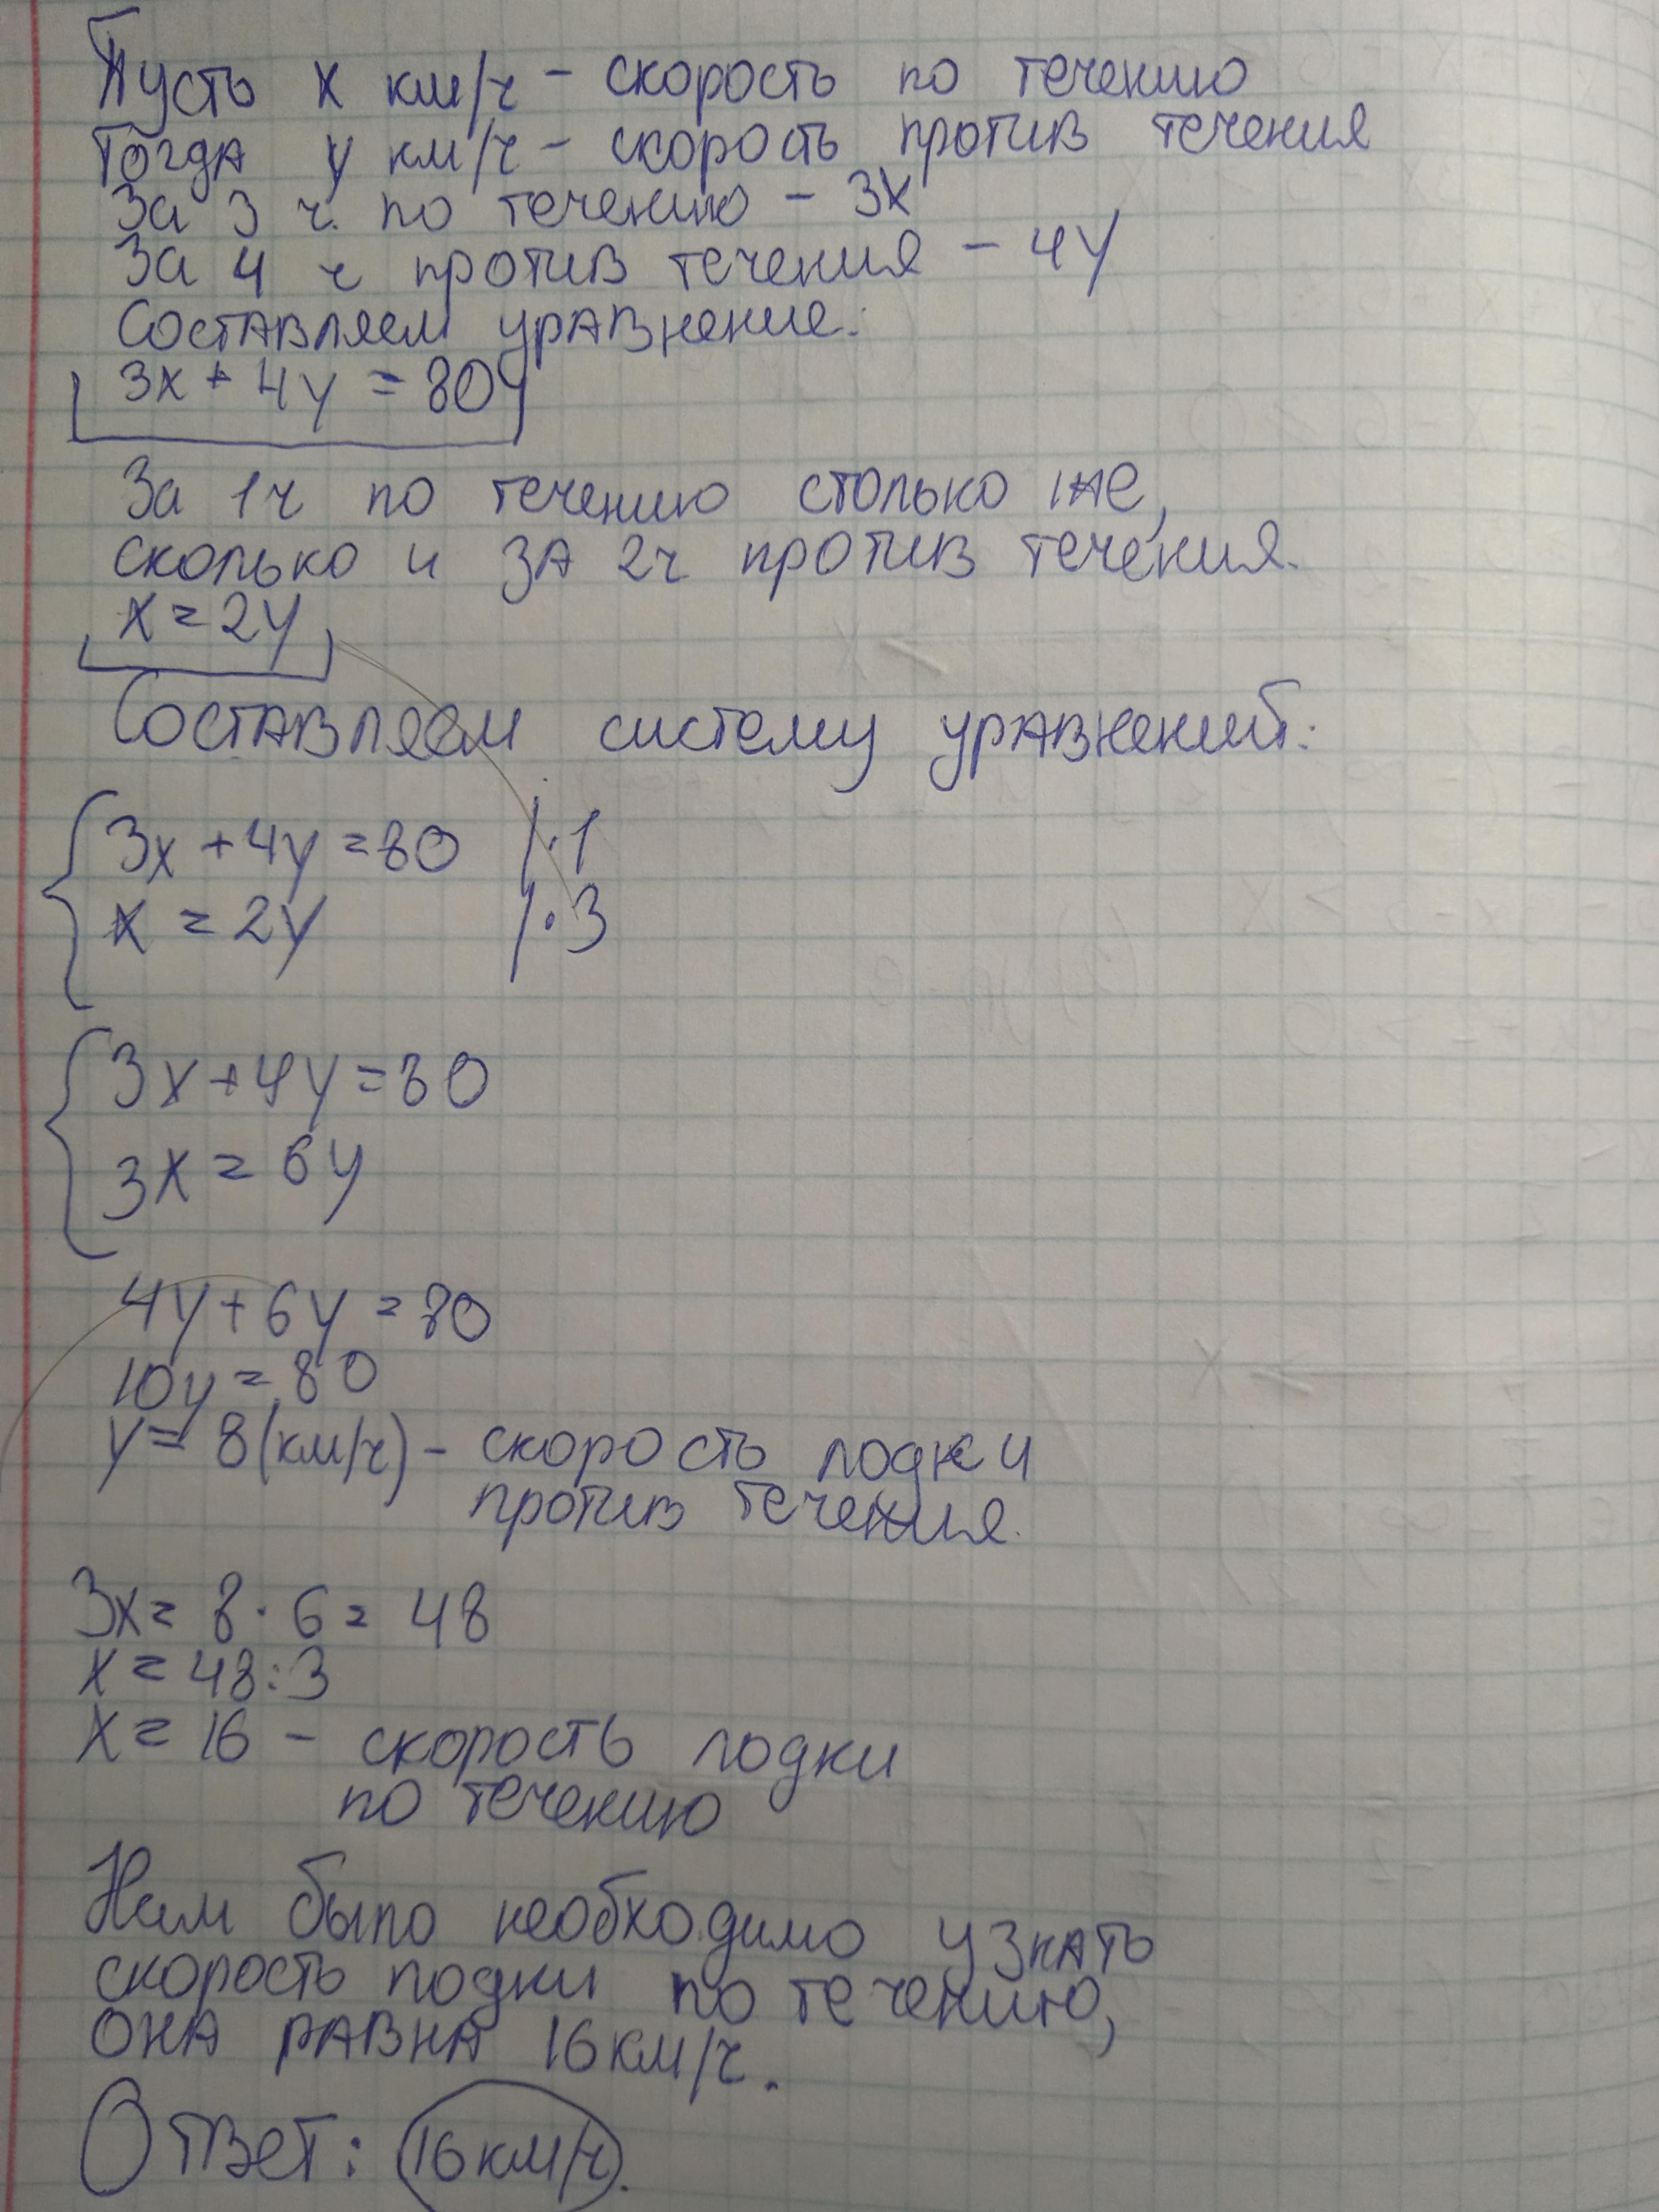 Пусть х км/ч - скорость по течению
Тогда у км/ч - скорость против течения
За 3 ч. по течению - 3х
За 4 ч против течения - 4у
Составляем уравнение:
3х + 4у = 80
За 1ч по течению столько же,
сколько и за 2ч против течения.
х = 2у
Составляем систему уравнений:
3х + 4у = 80 /·1
х = 2у /·3
3х + 4у = 80
3х = 6у
4у + 6у = 80
10у = 80
у = 8 (км/ч) - скорость лодки
против течения.
3х = 8 · 6 = 48
х = 48 : 3
х = 16 - скорость лодки
по течению
Нам было необходимо узнать
скорость лодки по течению,
она равна 16 км/ч.
Ответ: 16 км/ч.